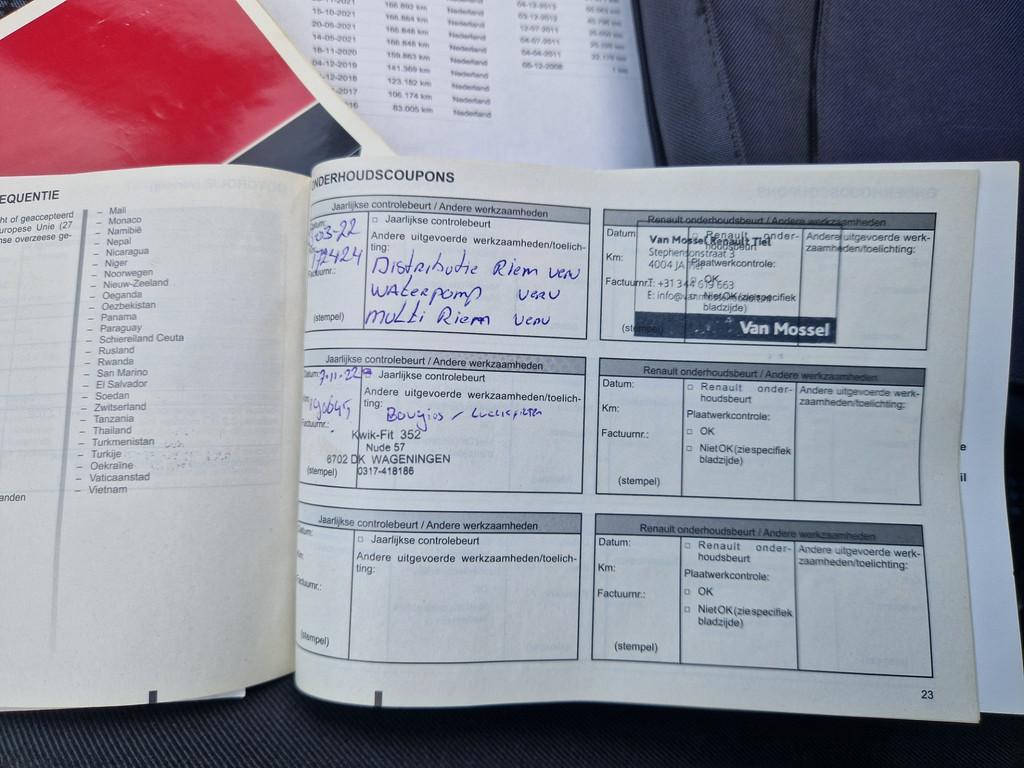 15-10-2021 166.864 km Nederland
20-05-2021 166.848 km Nederland
14-05-2021 166.848 km Nederland
18-11-2020 159.863 km Nederland
04-12-2019 141.369 km Nederland
-12-2018 123.182 km Nederland
-2017 106.174 km Nederland
16 83.005 km Nederland
EQUENTIE
ht of geaccepteerd
uropese Unie (27
nse overzeese ge-
anden
– Mali
– Monaco
– Namibië
– Nepal
– Nicaragua
– Niger
– Noorwegen
– Nieuw-Zeeland
– Oeganda
– Oezbekistan
– Panama
– Paraguay
– Schiereiland Ceuta
– Rusland
– Rwanda
– San Marino
– El Salvador
– Soedan
– Zwitserland
– Tanzania
– Thailand
– Turkmenistan
– Turkije
– Oekraïne
– Vaticaanstad
– Vietnam
ONDERHOUDSCOUPONS
Jaarlijkse controlebeurt / Andere werkzaamheden
Datum:
-03-22
172424
Factuurnr.:
(stempel)
□ Jaarlijkse controlebeurt
Andere uitgevoerde werkzaamheden/toelich-
ting:
Distributie Riem verv
Waterpomp verv
Multi Riem verv
Renault onderhoudsbeurt / Andere werkzaamheden
Datum:
Km:
Factuurnr.:
□ Renault onder-
houdsbeurt
Plaatwerkcontrole:
□ OK
□ Niet OK (zie specifiek
bladzijde)
Andere uitgevoerde werk-
zaamheden/toelichting:
Van Mossel Renault Tiel
Stephensonstraat 3
4004 JA Tiel
T: +31 344 619 663
Van Mossel
Jaarlijkse controlebeurt / Andere werkzaamheden
Datum:
7-11-22
190645
Factuurnr.:
(stempel)
Jaarlijkse controlebeurt
Andere uitgevoerde werkzaamheden/toelich-
ting:
Bougies / Luchtfilter
Kwik-Fit 352
Nude 57
6702 DK WAGENINGEN
0317-418186
Renault onderhoudsbeurt / Andere werkzaamheden
Datum:
Km:
Factuurnr.:
(stempel)
□ Renault onder-
houdsbeurt
Plaatwerkcontrole:
□ OK
□ Niet OK (zie specifiek
bladzijde)
Andere uitgevoerde werk-
zaamheden/toelichting:
Jaarlijkse controlebeurt / Andere werkzaamheden
Datum:
Km:
Factuurnr.:
(stempel)
□ Jaarlijkse controlebeurt
Andere uitgevoerde werkzaamheden/toelich-
ting:
Renault onderhoudsbeurt / Andere werkzaamheden
Datum:
Km:
Factuurnr.:
(stempel)
□ Renault onder-
houdsbeurt
Plaatwerkcontrole:
□ OK
□ Niet OK (zie specifiek
bladzijde)
Andere uitgevoerde werk-
zaamheden/toelichting:
23